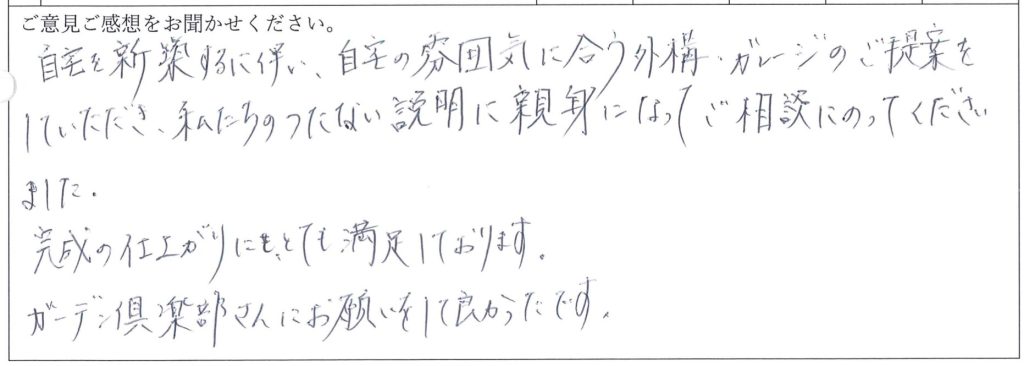 ご意見ご感想をお聞かせください。
自宅を新築するに伴い、自宅の雰囲気に合う外構・ガレージのご提案を
していただき、私たちのつたない説明に親身になってご相談にのってください
ました。
完成の仕上がりにも、とても満足しております。
ガーデン倶楽部さんにお願いをして良かったです。